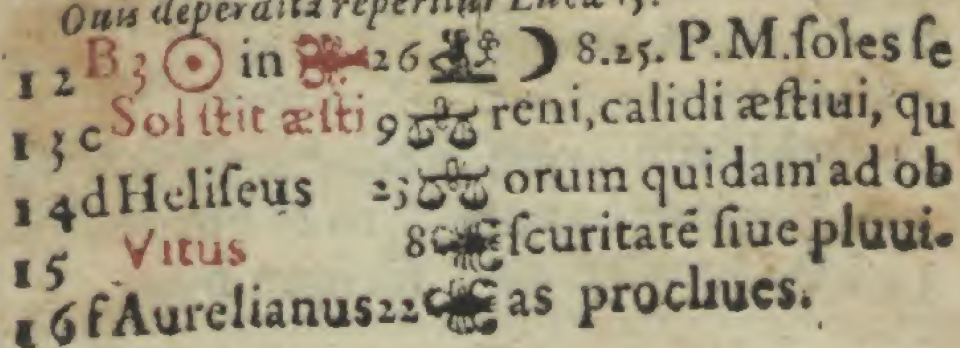 Ouis deperdita reperitur Lucæ 15.
12 B 3 ☉ in ♋ 26 ♍ ☽ 8.25. P.M. ſoles ſe
13 c Solſtit æſti 9 ♎ reni, calidi æſtiui, qu
14 d Heliſeus 23 ♎ orum quidam ad ob
15 Vitus 8 ♏ ſcuritatē ſiue pluui-
16 f Aurelianus 22 ♏ as procliues.